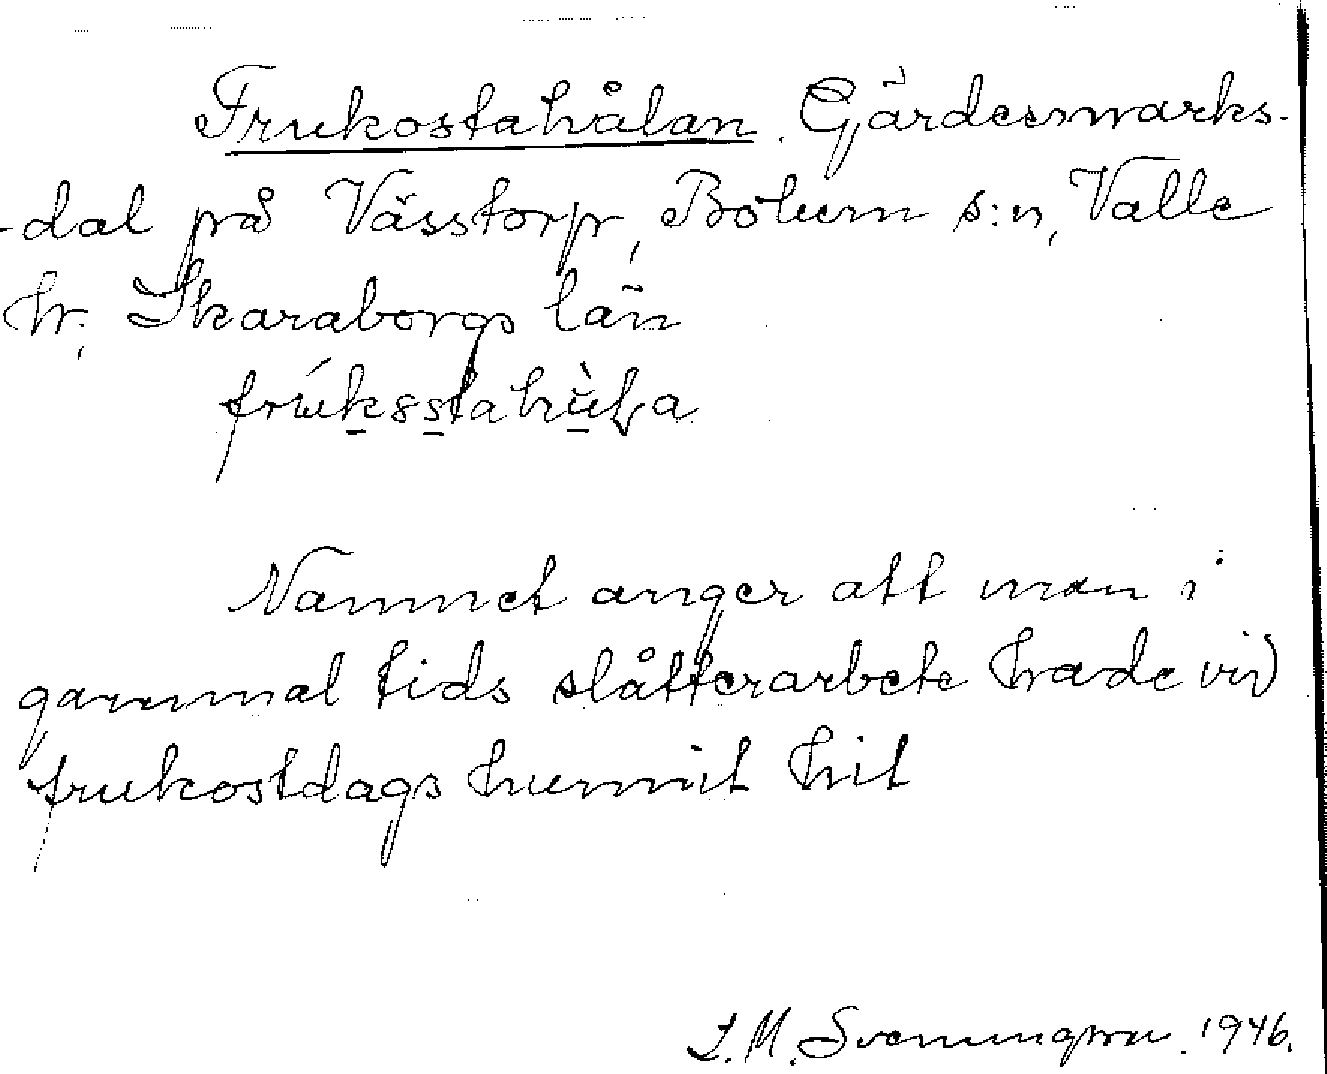 Frukostahålan. Gärdesmarks-
-dal på Västorp, Bolum s:n, Valle
hr, Skaraborgs län
Namnet anger att man i
gammal tids slåtterarbete hade vid
frukostdags hunnit hit
S. M. Svenungsson. 1946.